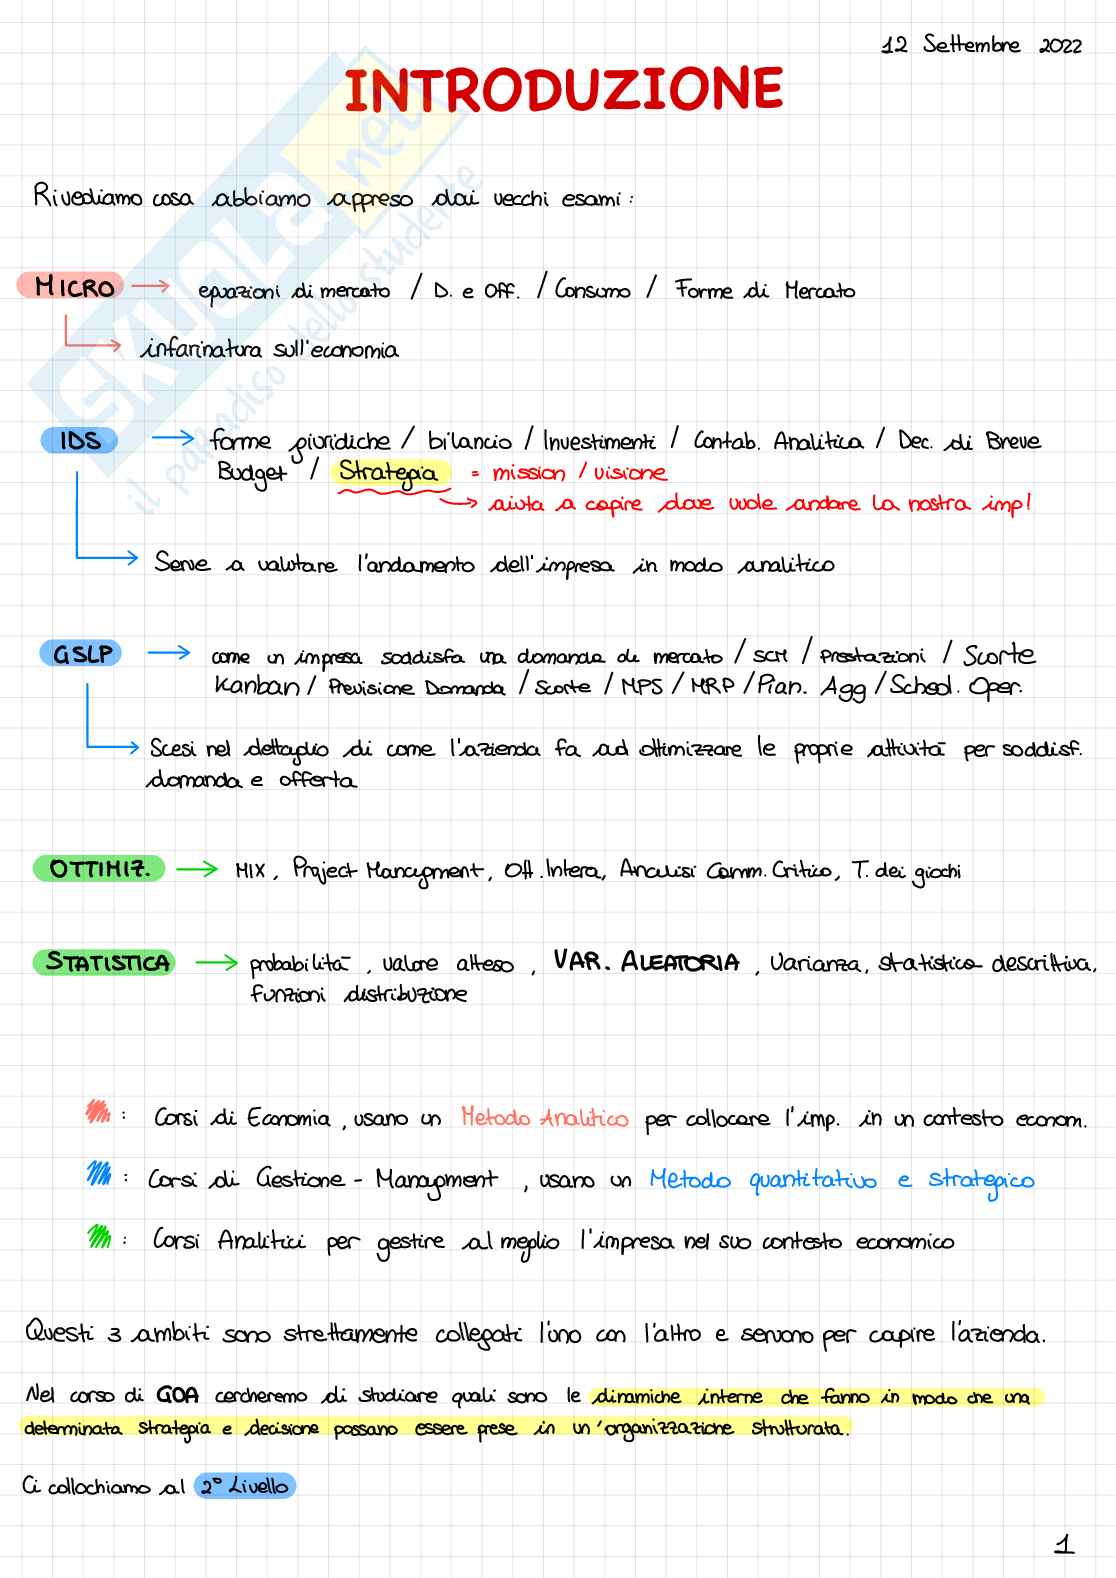 12 Settembre 2022
INTRODUZIONE
Rivediamo cosa abbiamo appreso dai vecchi esami :
MICRO → equazioni di mercato / D. e Off. / Consumo / Forme di Mercato
→ infarinatura sull'economia
IDS → forme giuridiche / bilancio / Investimenti / Contab. Analitica / Dec. di Breve
Budget / Strategia = mission / visione
→ aiuta a capire dove vuole andare la nostra imp!
→ Serve a valutare l'andamento dell'impresa in modo analitico
GSLP → come un impresa soddisfa una domanda di mercato / SCM / Prestazioni / Scorte
Kanban / Previsione Domanda / Scorte / MPS / MRP / Pian. Agg / Sched. Oper.
→ Scesi nel dettaglio di come l'azienda fa ad ottimizzare le proprie attività per soddisf.
domanda e offerta
OTTIMIZ. → MIX, Project Managment, Ott. Intera, Analisi Camm. Critico, T. dei giochi
STATISTICA → probabilità, valore atteso, VAR. ALEATORIA, Varianza, statistica descrittiva,
funzioni distribuzione
: Corsi di Economia, usano un Metodo Analitico per collocare l'imp. in un contesto econom.
: Corsi di Gestione - Managment, usano un Metodo quantitativo e strategico
: Corsi Analitici per gestire al meglio l'impresa nel suo contesto economico
Questi 3 ambiti sono strettamente collegati l'uno con l'altro e servono per capire l'azienda.
Nel corso di GOA cercheremo di studiare quali sono le dinamiche interne che fanno in modo che una
determinata strategia e decisione possano essere prese in un'organizzazione strutturata.
Ci collochiamo al 2° Livello
1
SKUOLA.net
il paradiso dello studente